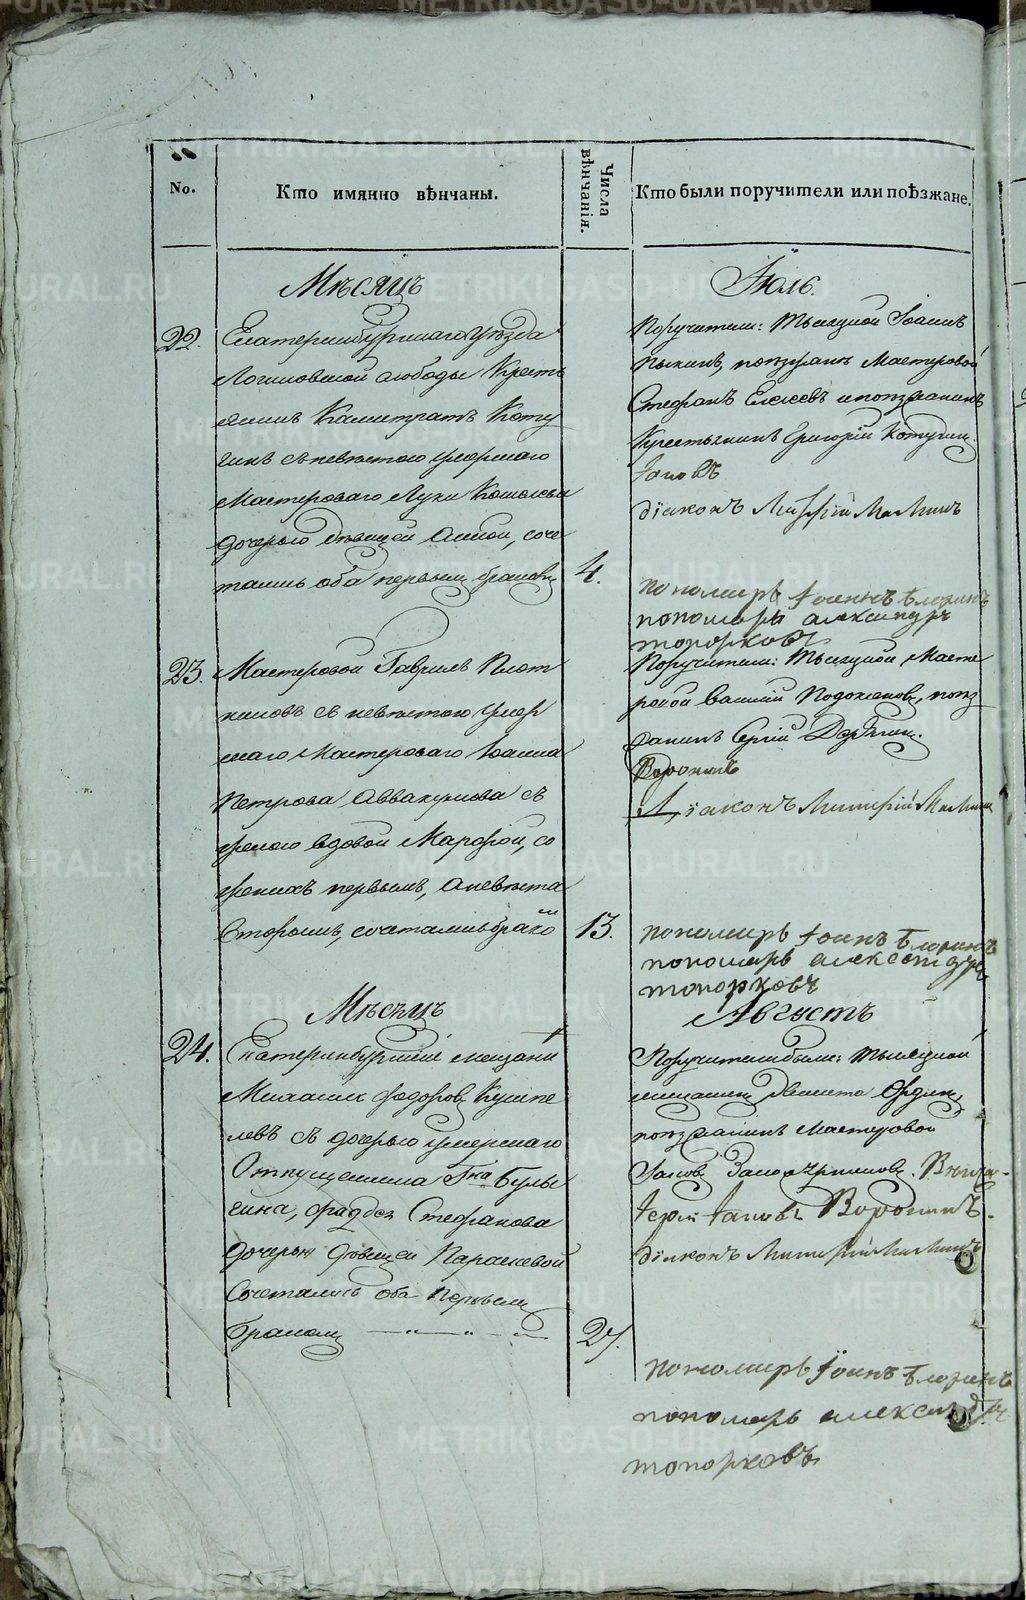 No.
Кто имянно вѣнчаны.
Числа вѣнчанія.
Кто были поручители или поѣзжане.
Мѣсяцъ
Іюль.
22.
Екатеринбургскаго уѣзда
Логиновской слободы Кресть
янинъ Калистратъ Коту
гинъ съ невѣстою умершаго
Мастероваго Луки Кошелева
дочерью дѣвицей Анной, соче
тались оба первымъ бракомъ
4.
Поручители: Тысяцкой Іоаннъ
поѣзжанъ Мастеровой
Стефанъ Елисеевъ и поѣзжанинъ
Крестьянинъ Григорій Котугин.
Іаковъ
діаконъ Мамин
пономарь Іоаннъ Флоринъ
пономарь александръ
топорковъ
23.
Мастеровой Гавриилъ Плот
никовъ съ невѣстою умер
шаго Мастероваго Іоанна
Петрова Аввакумова съ
женою вдовой Марфой, со
женихъ первымъ, а невѣста
вторымъ, сочетались брако
м
13.
Поручители: Тысяцкой Масте
ровой Василій поѣз
жанинъ Сергій
Воронинъ
Діаконъ Мамин
пономарь Іоаннъ Флоринъ
пономарь александръ
топорковъ
Мѣсяцъ
Августъ
24.
Екатеринбургскій мещани
Михаилъ Федоровъ Кушпе
левъ съ дочерью умершаго
Отпущенника Гна Булы
гина, Стефанова
дочерью дѣвицей Параскевой
Сочетались оба первымъ
бракомъ
27.
Поручители были: тысяцкой
мещанин
поѣзжанинъ Мастеровой
Іаков. Вѣнча-
Іерей Іаковъ Воронинъ.
діаконъ Маминъ
пономарь Іоаннъ Флоринъ
пономарь александръ
топорковъ
METRIKI.GASO-URAL.RU